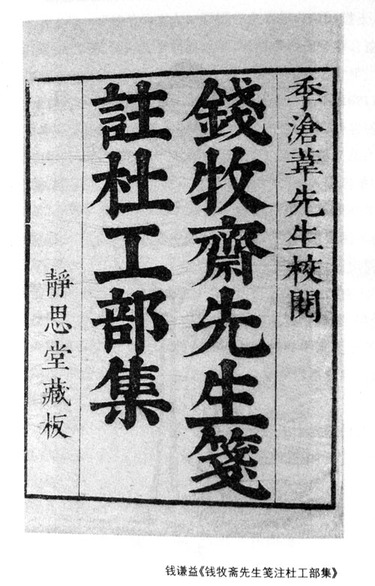 季滄葦先生校閱
錢牧齋先生箋
註杜工部集
靜思堂藏板
钱谦益《钱牧斋先生笺注杜工部集》